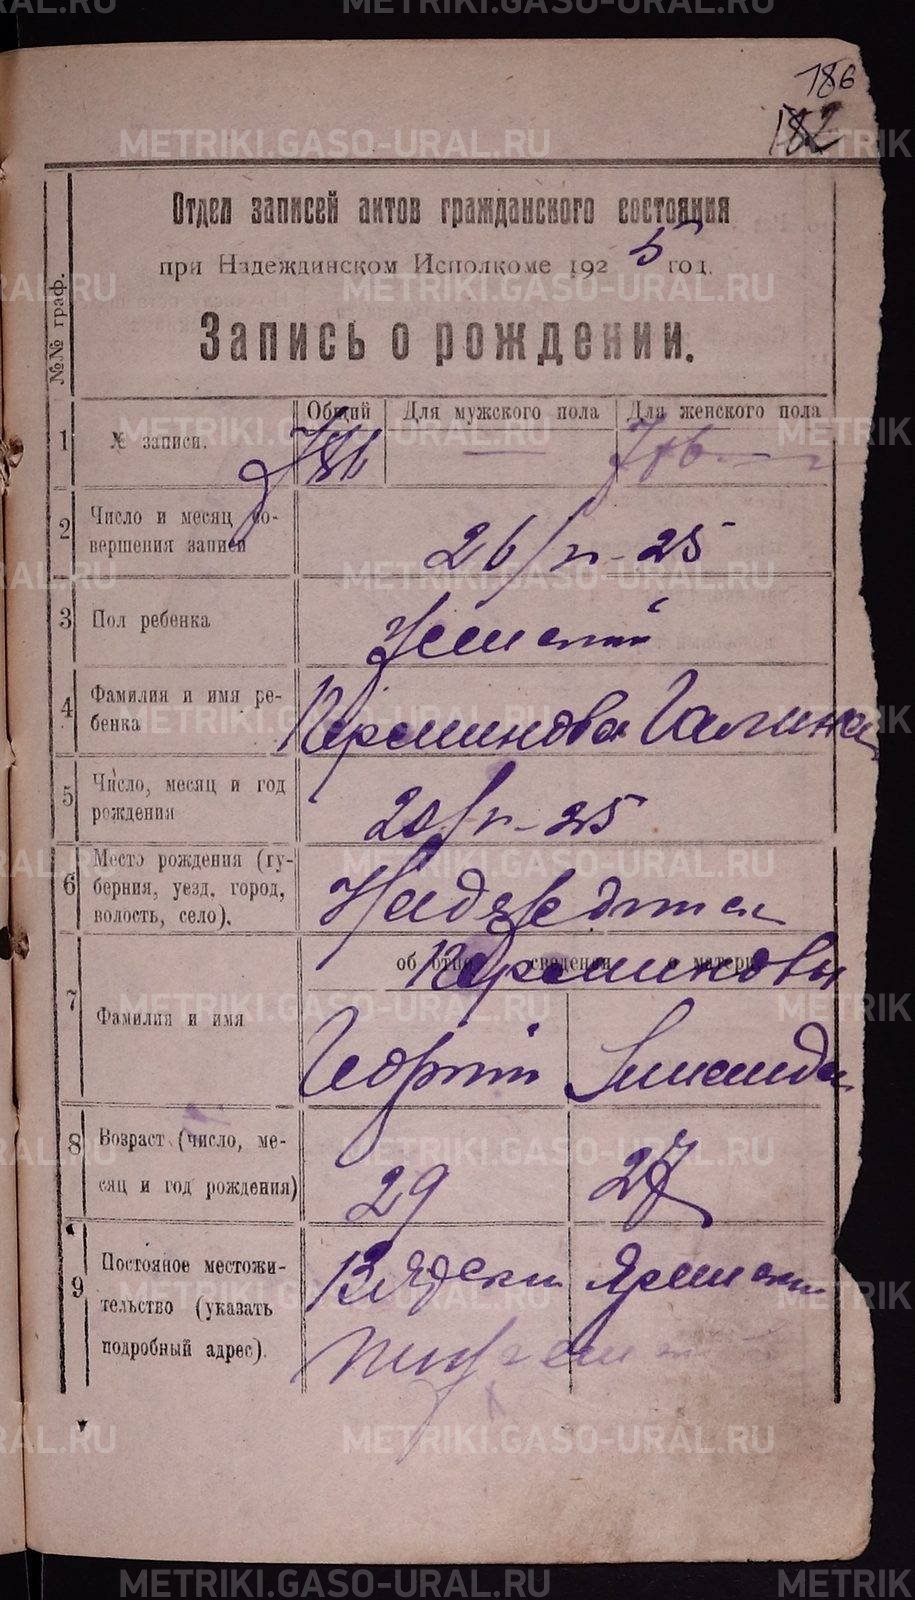 186
182
Отдел записей актов гражданского состояния
при Надеждинском Исполкоме 1925 год.
Запись о рождении.
№№ граф.
Общий Для мужского пола Для женского пола
1 № записи. 186 —
2 Число и месяц со-
вершения записи
26/ -25
3 Пол ребенка
Женский
4 Фамилия и имя ре-
бенка
Галина
5 Число, месяц и год
рождения
20/ -25
6 Место рождения (гу-
берния, уезд, город,
волость, село).
об отце сведения о матери
7 Фамилия и имя
Георгий
8 Возраст (число, ме-
сяц и год рождения)
29 27
9 Постоянное местожи-
тельство (указать
подробный адрес).
METRIKI.GASO-URAL.RU